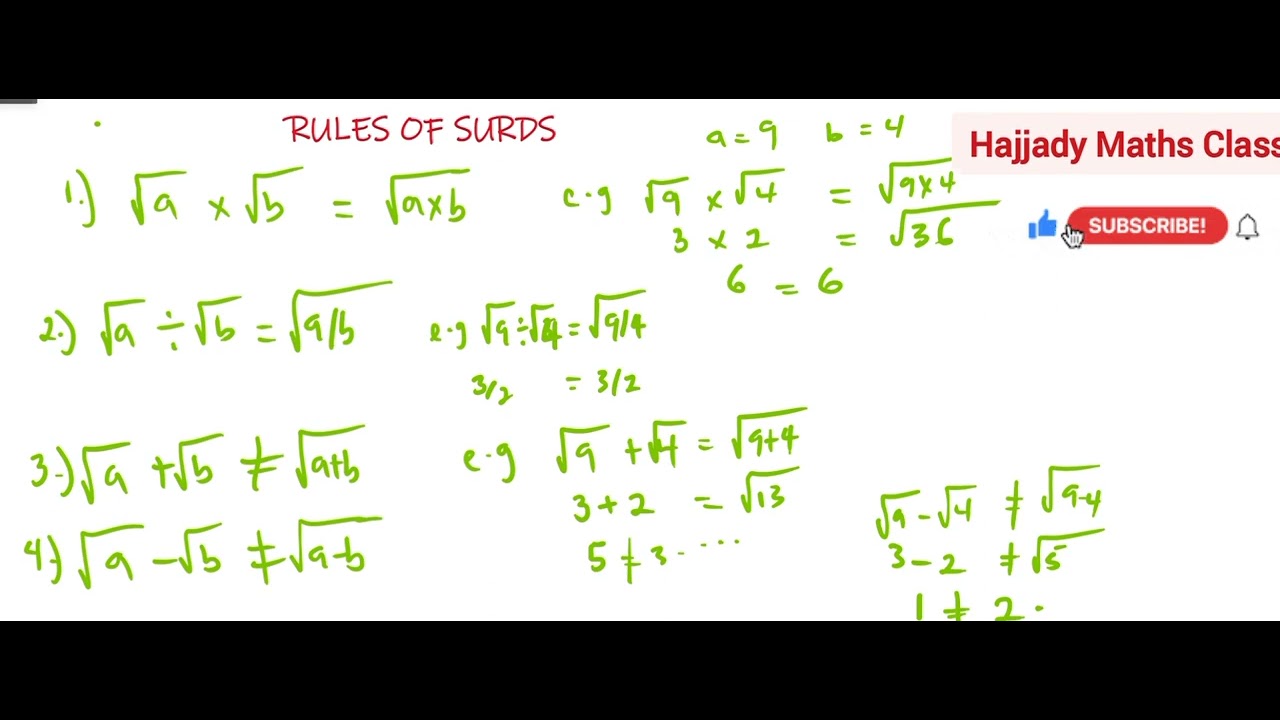 RULES OF SURDS
a = 9 b = 4
Hajjady Maths Class
SUBSCRIBE!
1.) √a × √b = √a×b
e.g √9 × √4 = √9×4
3 × 2 = √36
6 = 6
2.) √a ÷ √b = √a/b
e.g √9 ÷ √4 = √9/4
3/2 = 3/2
3.) √a + √b ≠ √a+b
e.g √9 + √4 = √9+4
3 + 2 = √13
5 ≠ 3. ....
4.) √a − √b ≠ √a−b
√9 − √4 ≠ √9−4
3 − 2 ≠ √5
1 ≠ 2.